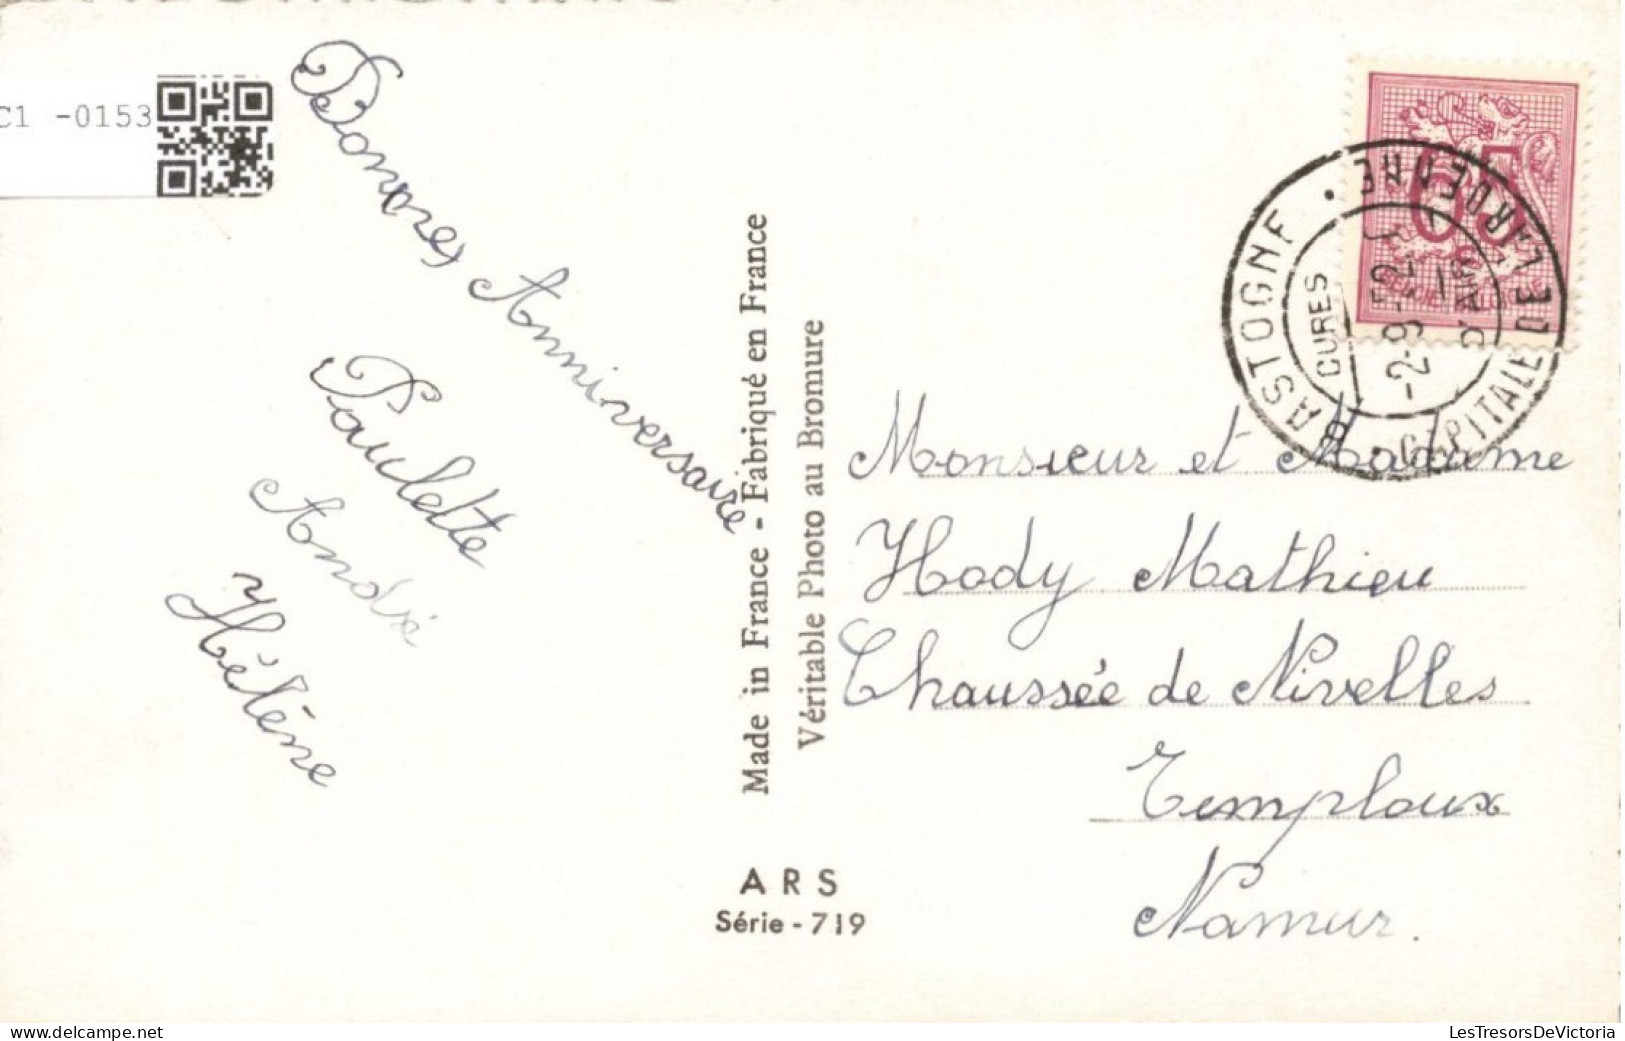 C1 -0153
Bonnes Anniversaire
Paulette
André
Hélène
Made in France - Fabriqué en France
Véritable Photo au Bromure
ARS
Série - 719
65
BELGIE BELGIQUE
BASTOGNE • CAPITALE DE L'ARDENNE •
CURES
D'AIR
Monsieur et Madame
Hody Mathieu
Chaussée de Nivelles
Temploux
Namur.
LesTresorsDeVictoria
delcampe.net